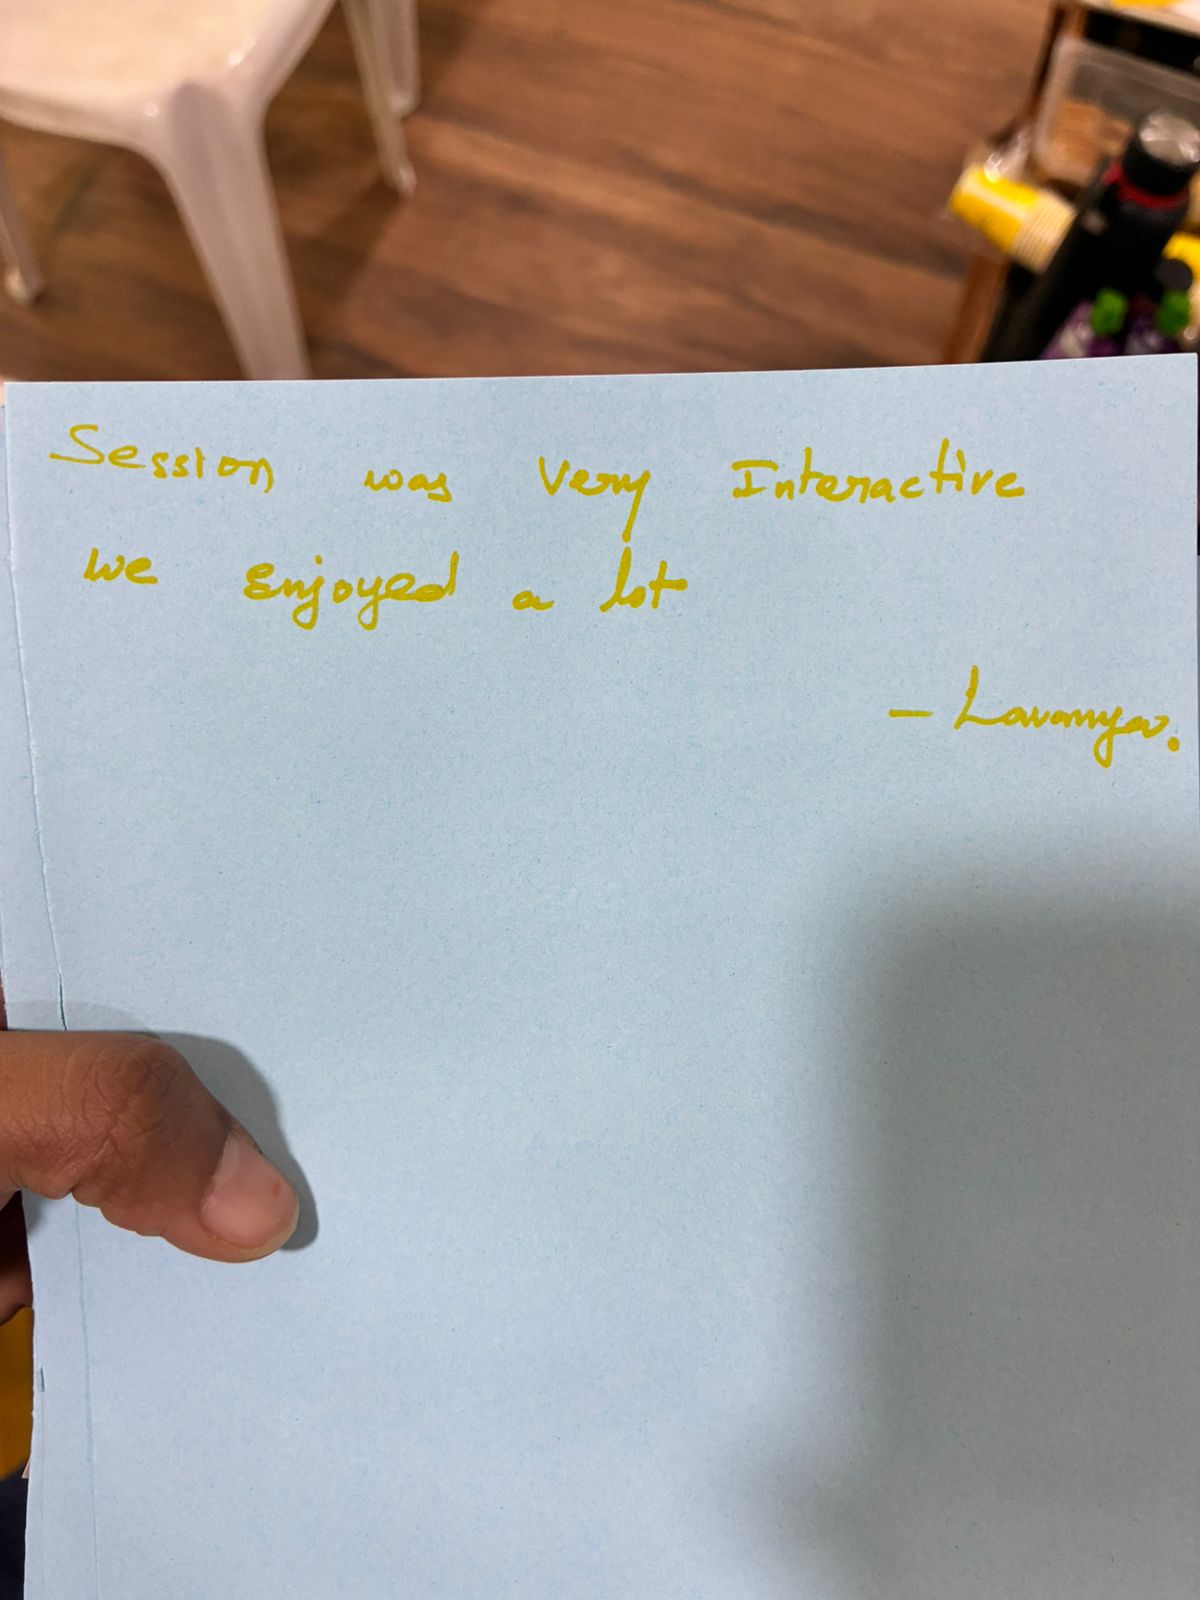 Session was Very Interactive
We Enjoyed a lot
- Lavanya.